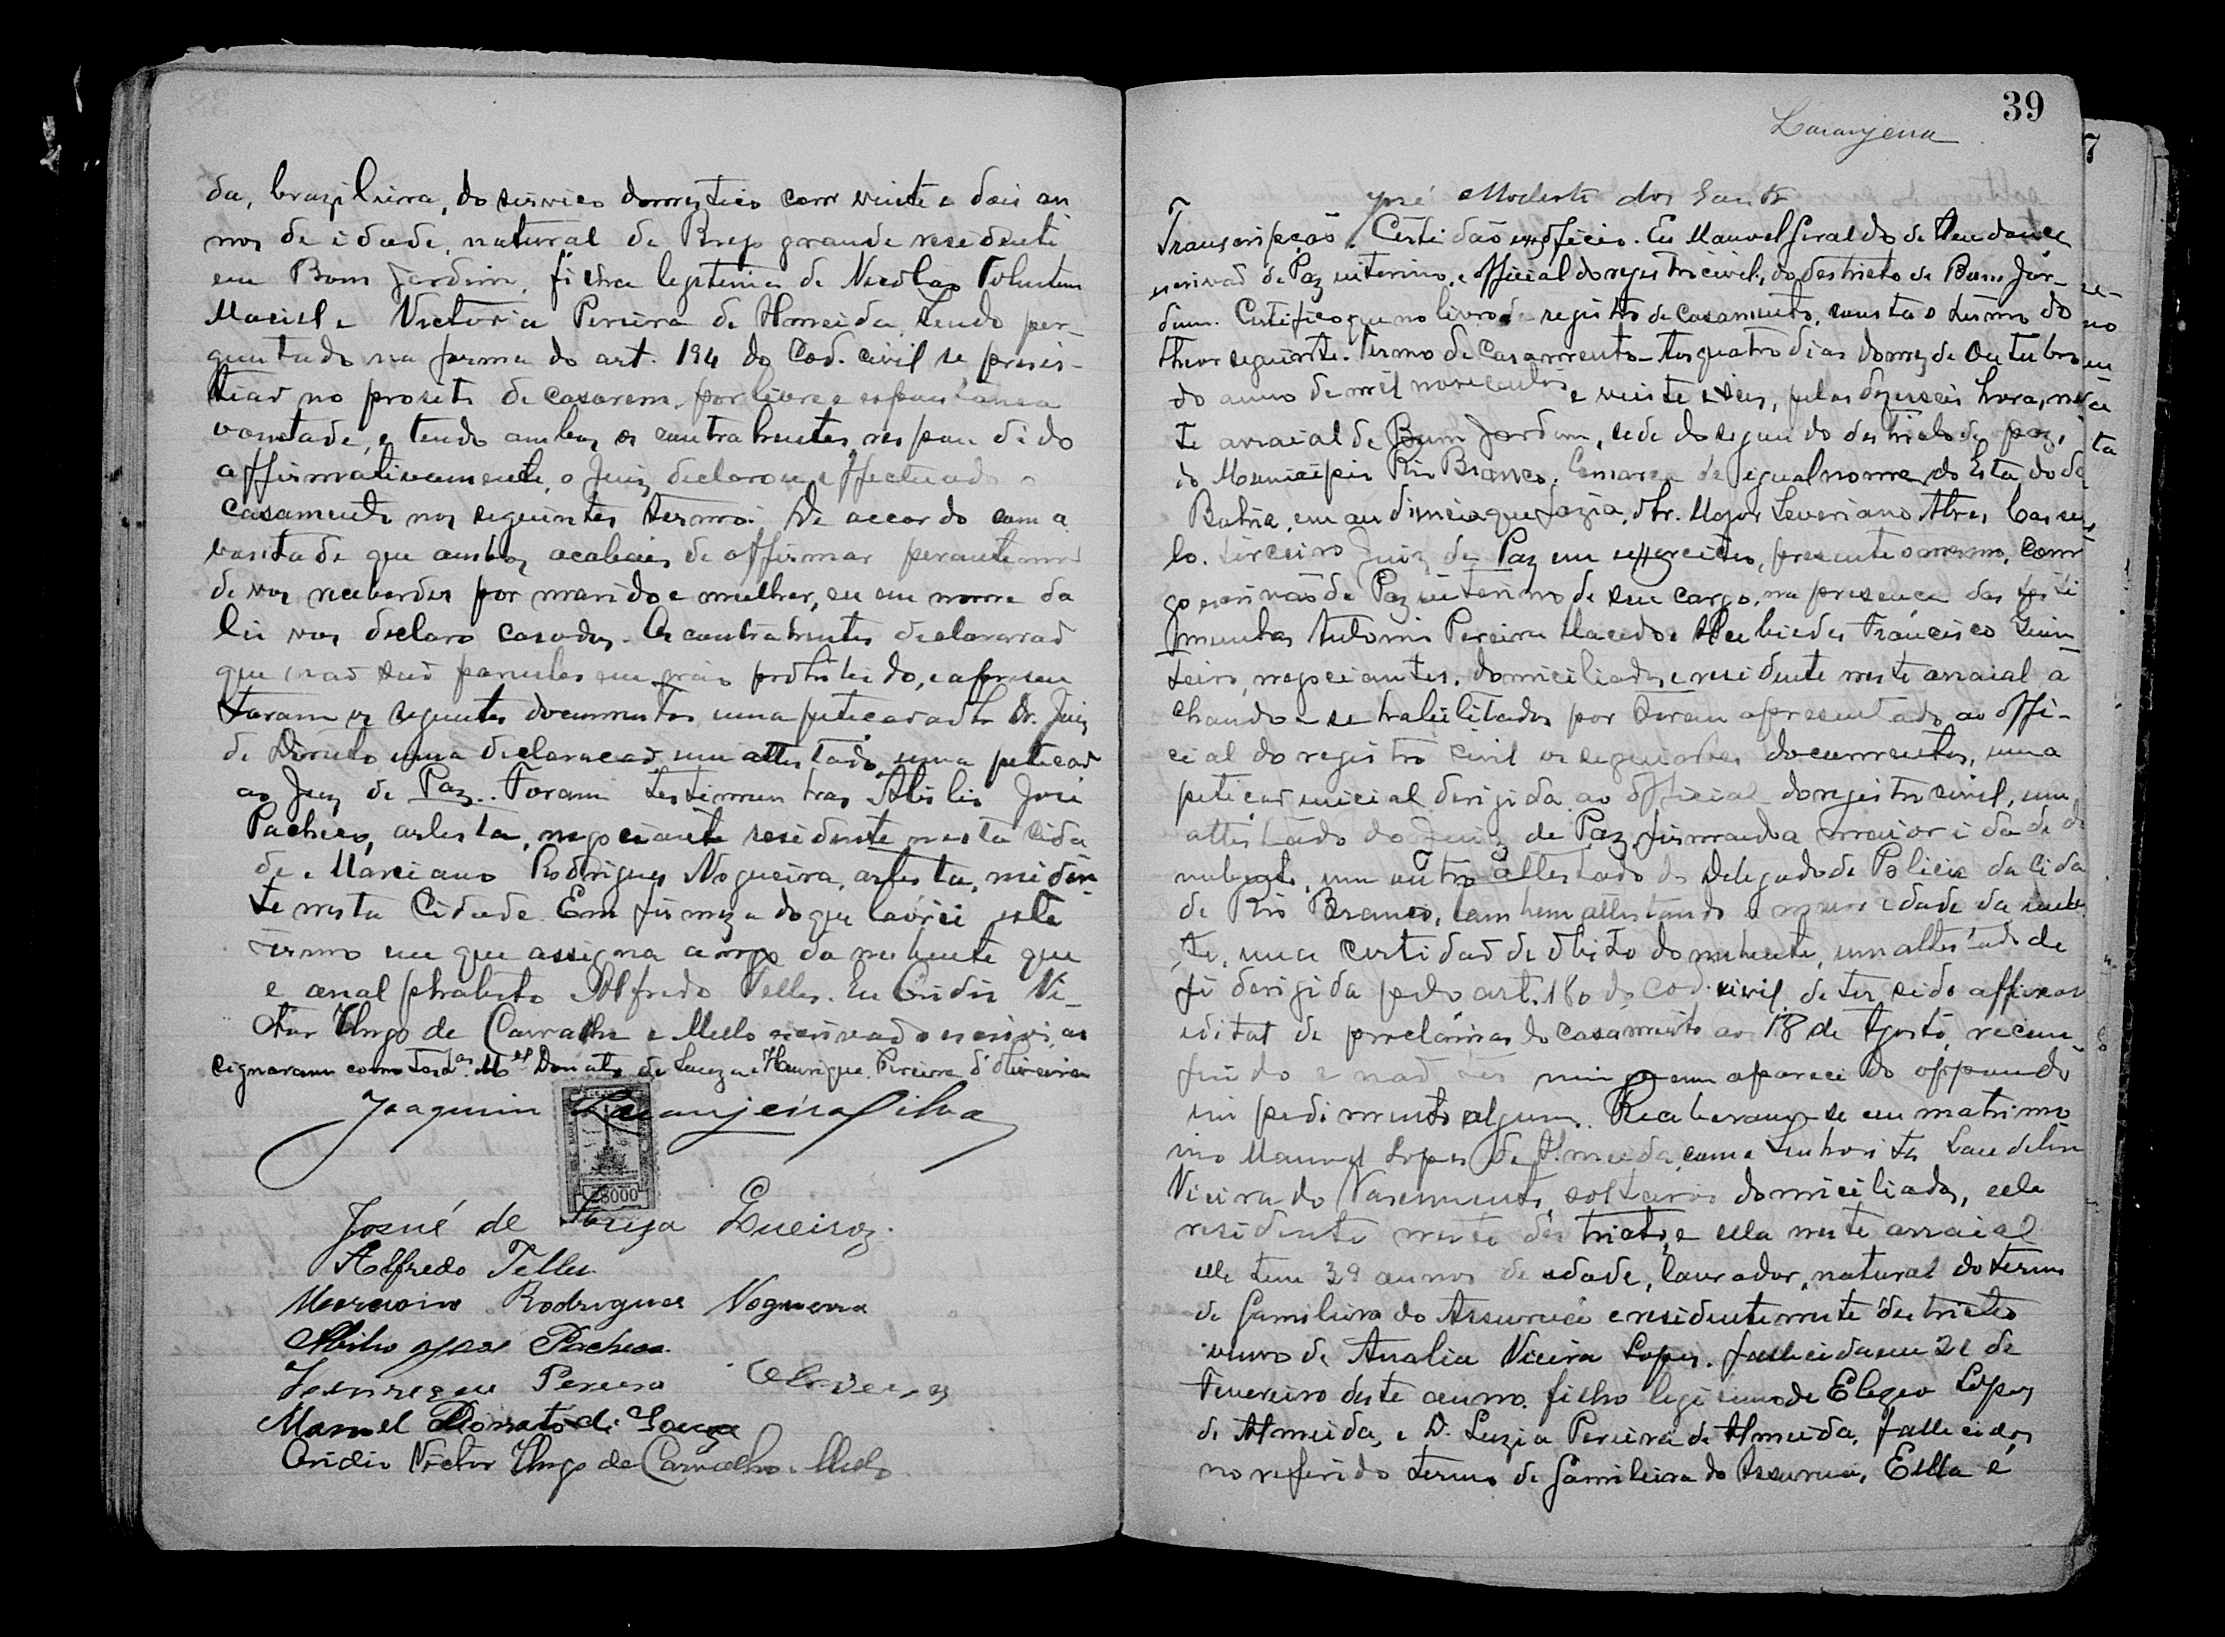 da, brazileira, do serviço domestico com vinte e dois an
nos de idade, natural de Brejo grande residente
em Bom Jardim, filha legitima de Nicolao
Maciel e Victoria Pereira de Almeida, Sendo per-
guntado na forma do art. 194 do Cod. civil se presis-
tiao no prosito de casarem, por livre e espontanea
vontade, e tendo ambos os contrahentes respondido
affirmativamente, o Juiz declarou effectuado o
Casamento nos seguintes termos: De accordo com a
vontade que ambos acabais de affirmar perante mim
de vos receberdes por marido e mulher, eu em nome da
lei vos declaro casados. Os contrahentes declararao
que nao sao parentes em grao prohibido, e apresen
taram os seguentes documentos, uma peticao ao Dr. Juiz
de Direito uma declaracao, um attestado, uma peticao
ao Juiz de Paz. Foram testimunhas Abilio José
Pacheco, artista, negociante residente nesta Cida
de e Marciano Rodrigues Nogueira, artista, residen
te nesta Cidade. Em firmeza do que lavrei este
termo em que assigna a rogo da nubente que
e analphabeto Alfredo Telles. Eu Ovidio Vi-
ctor Hugo de Carvalho e Mello escrivao o escrivi, as
cignaram como test.as M.el Donato de Souza e Henrique Pereira d'Oliveira
Joaquim Laranjeira Silva
8000
Josué de Souza Queiroz.
Alfredo Telles
Marciano Rodrigues Nogueira
Abilio José Pacheco
Henrique Pereira Oliveira
Manuel Donato de Souza
Ovidio Victor Hugo de Carvalho e Mello
39
Laranjeira
José Modesto dos Santos
Transcripção. Certidão exofficio. Eu Manoel Geraldo de
escrivaõ de Paz interino, e official do registro civil, do destricto de Bom Jar-
dim. Certifico que no livro de registo de Casamento, consta o termo do
theor seguinte. Termo de Casamento Aos quatro dias do mez de Outubro
do anno de mil novecentos e vinte e seis, pelas dezesseis horas, nes
te arraial de Bom Jardim, sede do segundo destricto de paz,
do Municipio Rio Branco, Comarca de egual nome do Estado da
Bahia, em audiencia que fazia, o Sr. Major Severiano Alves
lo. terceiro Juiz de Paz em exercicio, presente o mesmo, com
go escrivão de Paz interino de seu cargo, na presença das testi
munhas Antonio Pereira Macedo e Alcebiedes Francisco Quin
teiro, negociantes, domiciliados e residente neste arraial a
chando-se habilitados por terem apresentado ao offi-
cial do registro civil os seguintes documentos, uma
peticao inicial derigida ao official do registro civil, um
attestado do Juiz de Paz firmando a maioridade do
nubente, um outro attestado do Delegado de Policia da Cida
de Rio Branco, tambem attestando a maior edade da nuben
te, uma certidao de obito do nubente, um attestado de
fé derigida pelo art. 180 do Cod. civil, de ter sido affixado
edital de proclamas do casamento ao 18 de Agosto, recem
findo e nao ter ninguem aparecido oppondo
impedimento algum. Receberam-se em matrimo
nio Manoel Lopes de Almeida, com a Senhorita Laudelin
Vieira do Nascimento, solteiros domiciliados, elle
residente neste destricto, e ella neste arraial
elle tem 39 annos de edade, lavrador, natural do termo
de Gamileira do Assuruá e residente neste destricto
viuvo de Analia Vieira Lopes. fallecida em 21 de
Fevereiro deste anno, filho legitimo de Elegeo Lopes
de Almeida, e D. Luzia Pereira de Almeida, fallecidos
no referido termo de Gamileira do Assuruá, Ella é
7